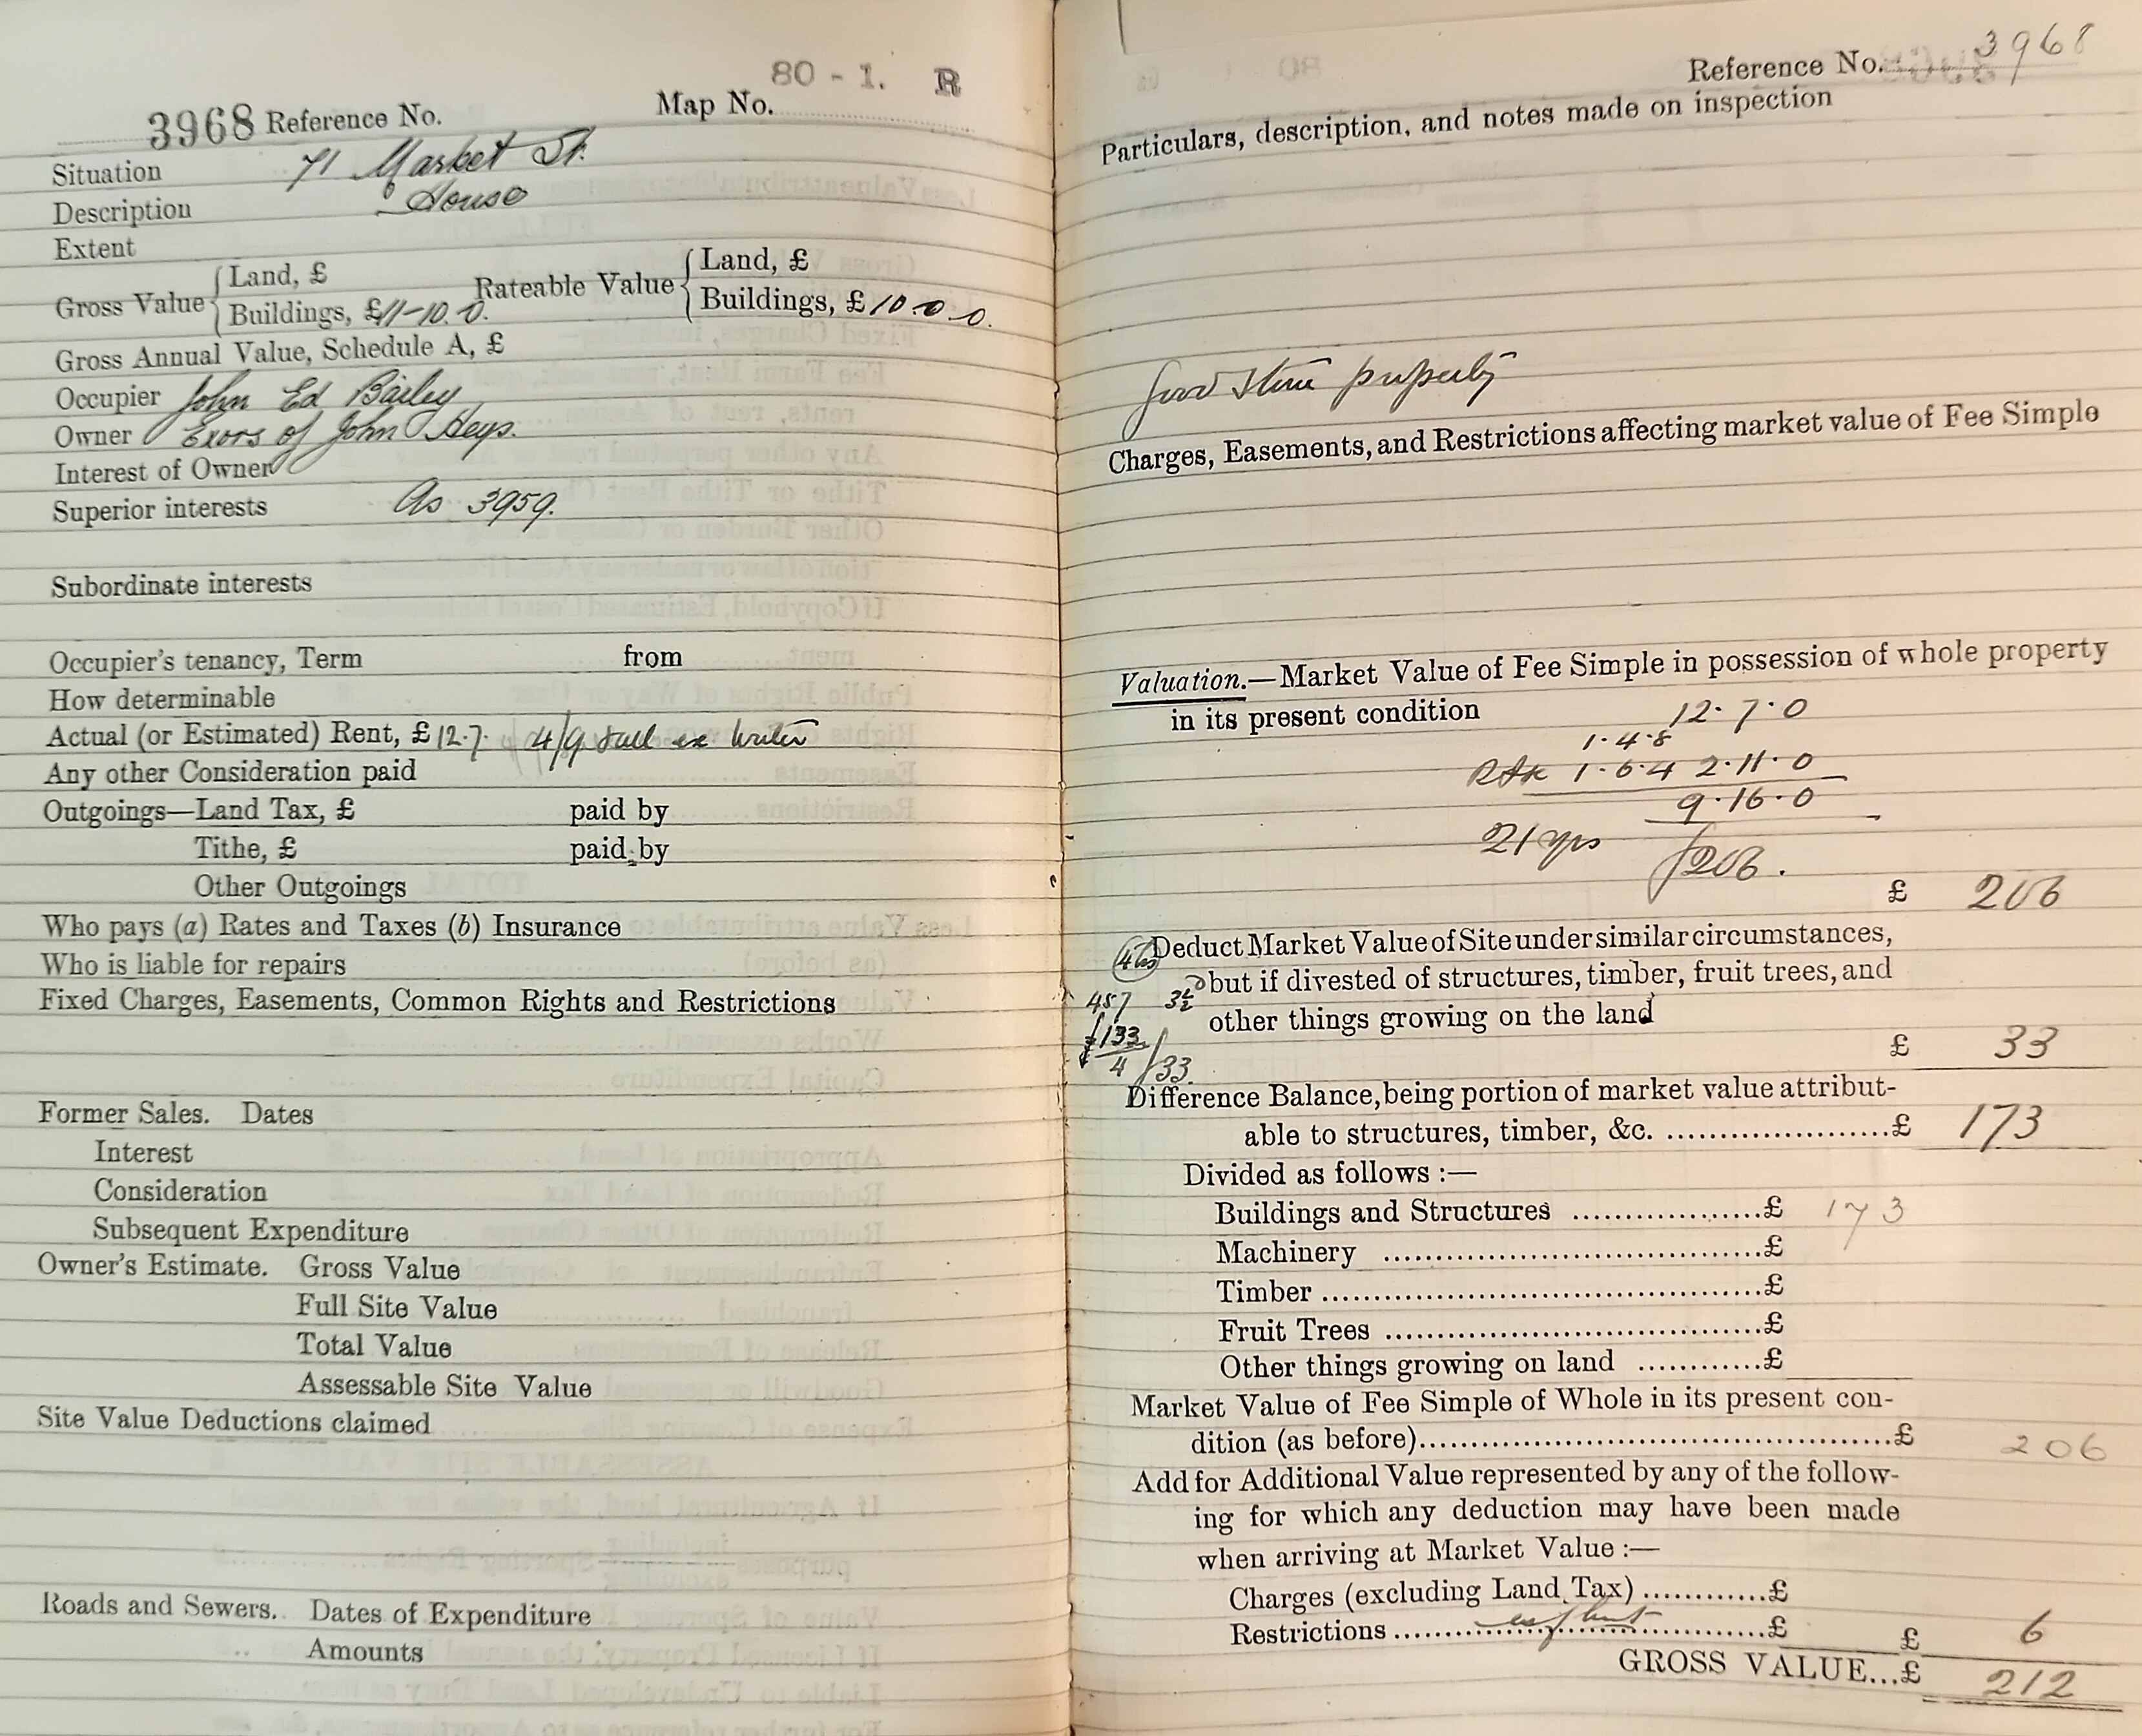 80 - 1. R
3968 Reference No. Map No.
Situation 71 Market St.
Description House
Extent
Gross Value { Land, £ Rateable Value { Land, £
Buildings, £11-10.0. Buildings, £10.0.0.
Gross Annual Value, Schedule A, £
Occupier John Ed Bailey
Owner Exors of John Heys.
Interest of Owner
Superior interests As 3959.
Subordinate interests
Occupier's tenancy, Term from
How determinable
Actual (or Estimated) Rent, £12.7. 4/9 ex water
Any other Consideration paid
Outgoings—Land Tax, £ paid by
Tithe, £ paid by
Other Outgoings
Who pays (a) Rates and Taxes (b) Insurance
Who is liable for repairs
Fixed Charges, Easements, Common Rights and Restrictions
Former Sales. Dates
Interest
Consideration
Subsequent Expenditure
Owner's Estimate. Gross Value
Full Site Value
Total Value
Assessable Site Value
Site Value Deductions claimed
Roads and Sewers. Dates of Expenditure
Amounts
Reference No. 3968
Particulars, description, and notes made on inspection
Good stone property
Charges, Easements, and Restrictions affecting market value of Fee Simple
Valuation.—Market Value of Fee Simple in possession of whole property
in its present condition 12.7.0
1.4.8
1.6.4 2.11.0
9.16.0
21 yrs £206.
£ 206
Deduct Market Value of Site under similar circumstances,
but if divested of structures, timber, fruit trees, and
457 3½ other things growing on the land
£133
£ 33
4 /33.
Difference Balance, being portion of market value attribut-
able to structures, timber, &c. ......................£ 173
Divided as follows :—
Buildings and Structures ...................£ 173
Machinery ......................................£
Timber ............................................£
Fruit Trees ......................................£
Other things growing on land ............£
Market Value of Fee Simple of Whole in its present con-
dition (as before)...............................................£ 206
Add for Additional Value represented by any of the follow-
ing for which any deduction may have been made
when arriving at Market Value :—
Charges (excluding Land Tax) ............£
Restrictions ......................................£ £ 6
GROSS VALUE...£ 212